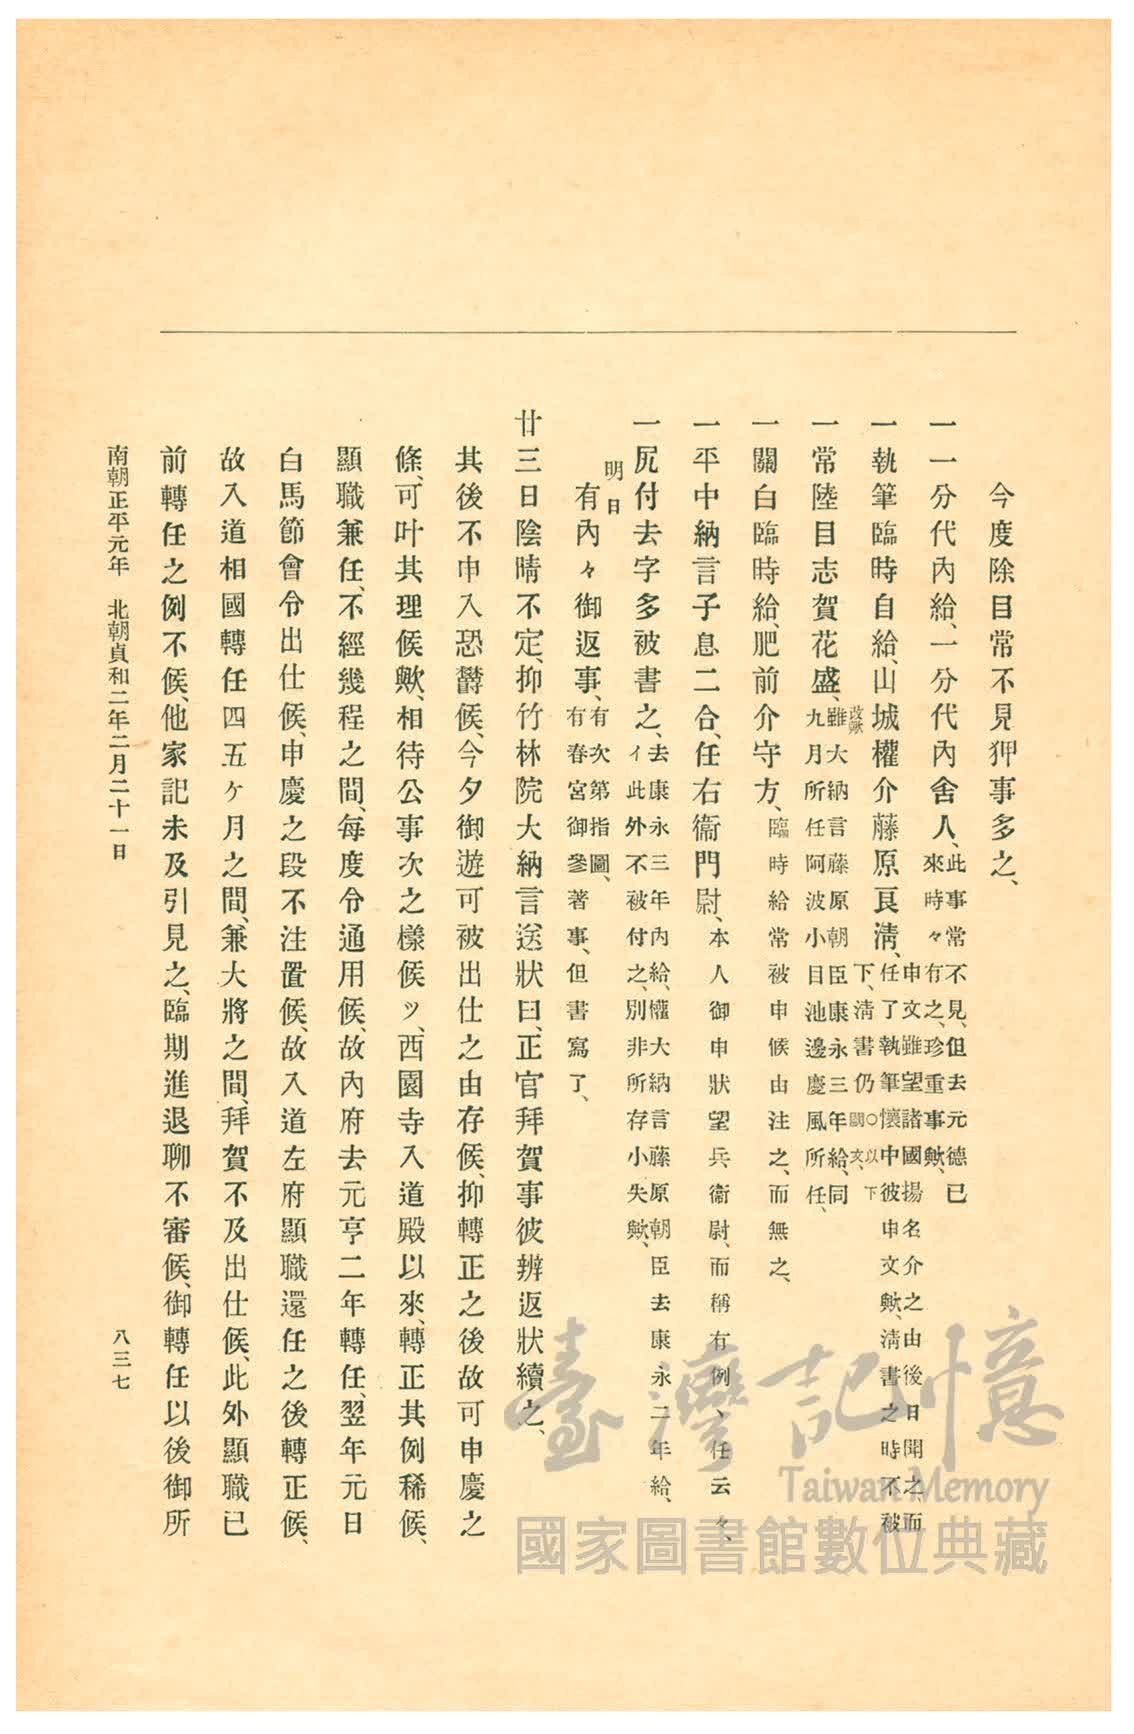 今度除目常不見狎事多之、
一一分代內給、一分代內舍人、此事常不見、但去元德已
來時々有之、珍重事歟、
一執筆臨時自給、山城權介藤原良淸、申文雖望諸國揚名介之由後日聞之、而
任了執筆懷中彼申文歟、淸書之時不被
下、淸書仍〇以下
闕文、
一常陸目志賀花盛、雖大納言藤原朝臣康永三年給、同
改歟
九月所任阿波小目池邊慶風所任、
一關白臨時給、肥前介守方、臨時給常被申候由注之、而無之、
一平中納言子息二合、任右衞門尉、本人御申狀望兵衞尉、而稱有例、任云々、
一尻付去字多被書之、去康永三年內給、權大納言藤原朝臣去康永二年給、
イ此外不被付之、別非所存小失歟、
明日
有內々御返事、有次第指圖、
有春宮御參著事、但書寫了、
廿三日陰晴不定、抑竹林院大納言送狀曰、正官拜賀事彼辨返狀續之、
其後不申入恐欝候、今夕御遊可被出仕之由存候、抑轉正之後故可申慶之
條、可叶其理候歟、相待公事次之樣候ツ、西園寺入道殿以來、轉正其例稀候、
顯職兼任、不經幾程之間、每度令通用候、故內府去元亨二年轉任、翌年元日
白馬節會令出仕候、申慶之段不注置候、故入道左府顯職還任之後轉正候、
故入道相國轉任四五ヶ月之間、兼大將之間、拜賀不及出仕候、此外顯職已
前轉任之例不候、他家記未及引見之、臨期進退聊不審候、御轉任以後御所
南朝正平元年 北朝貞和二年二月二十一日
八三七
臺灣記憶
Taiwan Memory
國家圖書館數位典藏